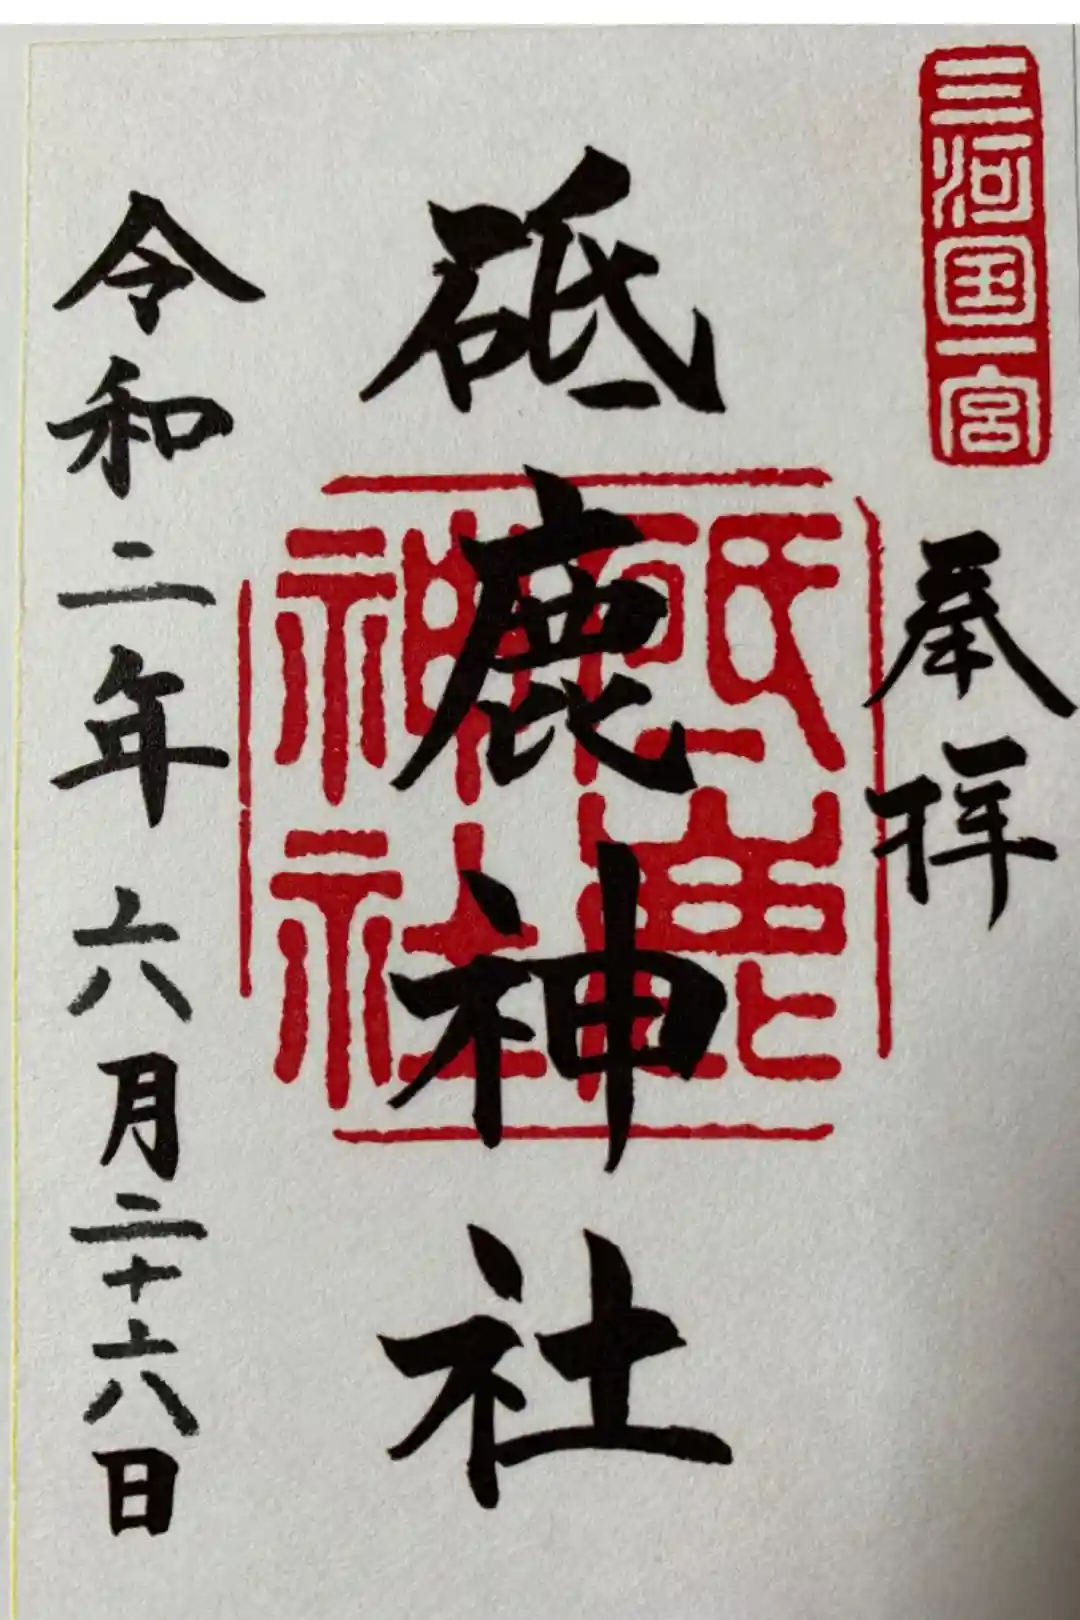 三河国一宮
奉拝
砥鹿神社
砥鹿
神社
令和二年六月二十六日